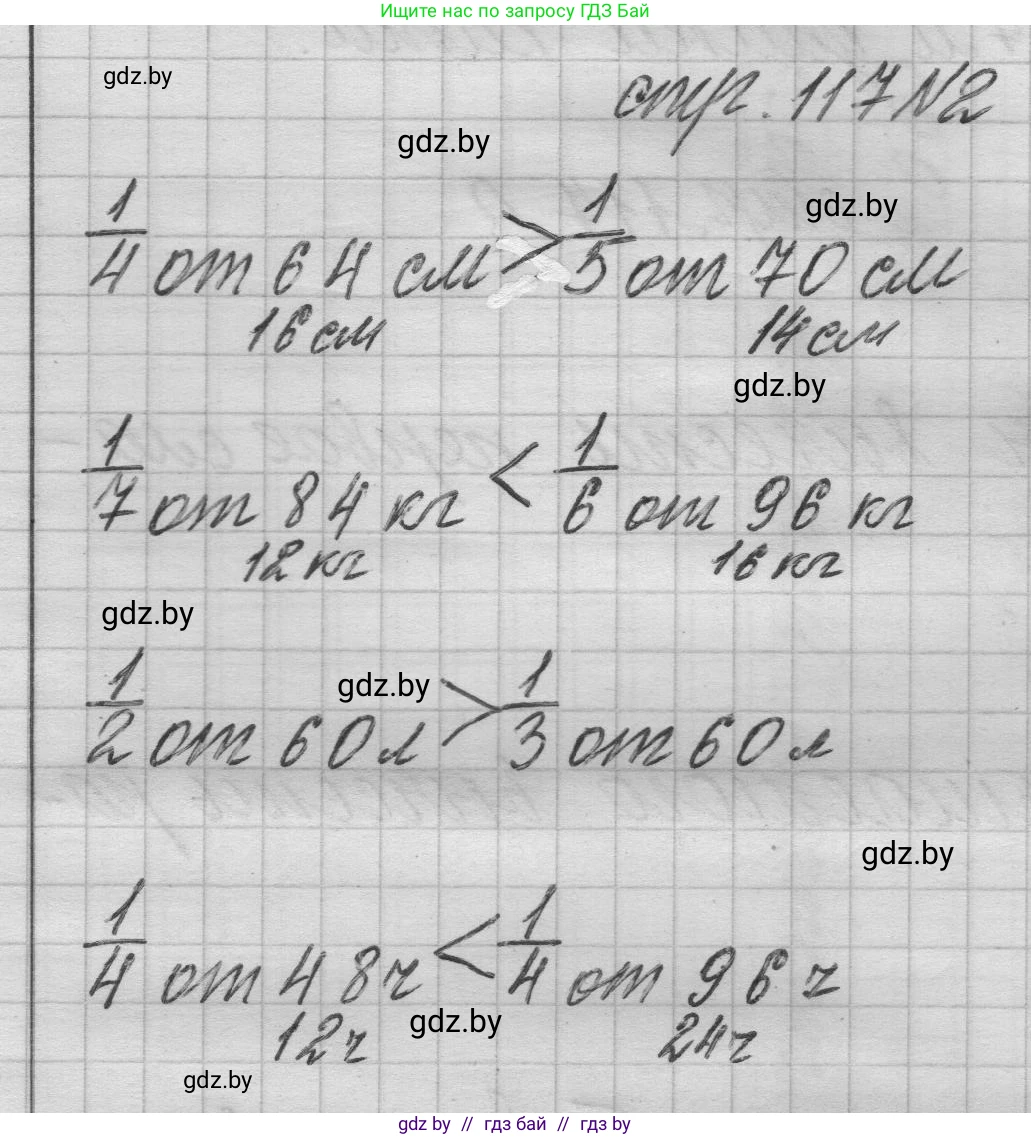 Ищите нас по запросу ГДЗ Бай
gdz.by
стр. 117 №2
gdz.by
gdz.by
1/4 от 64 см > 1/5 от 70 см
16 см 14 см
gdz.by
1/7 от 84 кг < 1/6 от 96 кг
12 кг 16 кг
gdz.by
gdz.by
1/2 от 60 л > 1/3 от 60 л
gdz.by
1/4 от 48 ч < 1/4 от 96 ч
12 ч gdz.by 24 ч
gdz.by
gdz.by // гдз бай // gdz.by